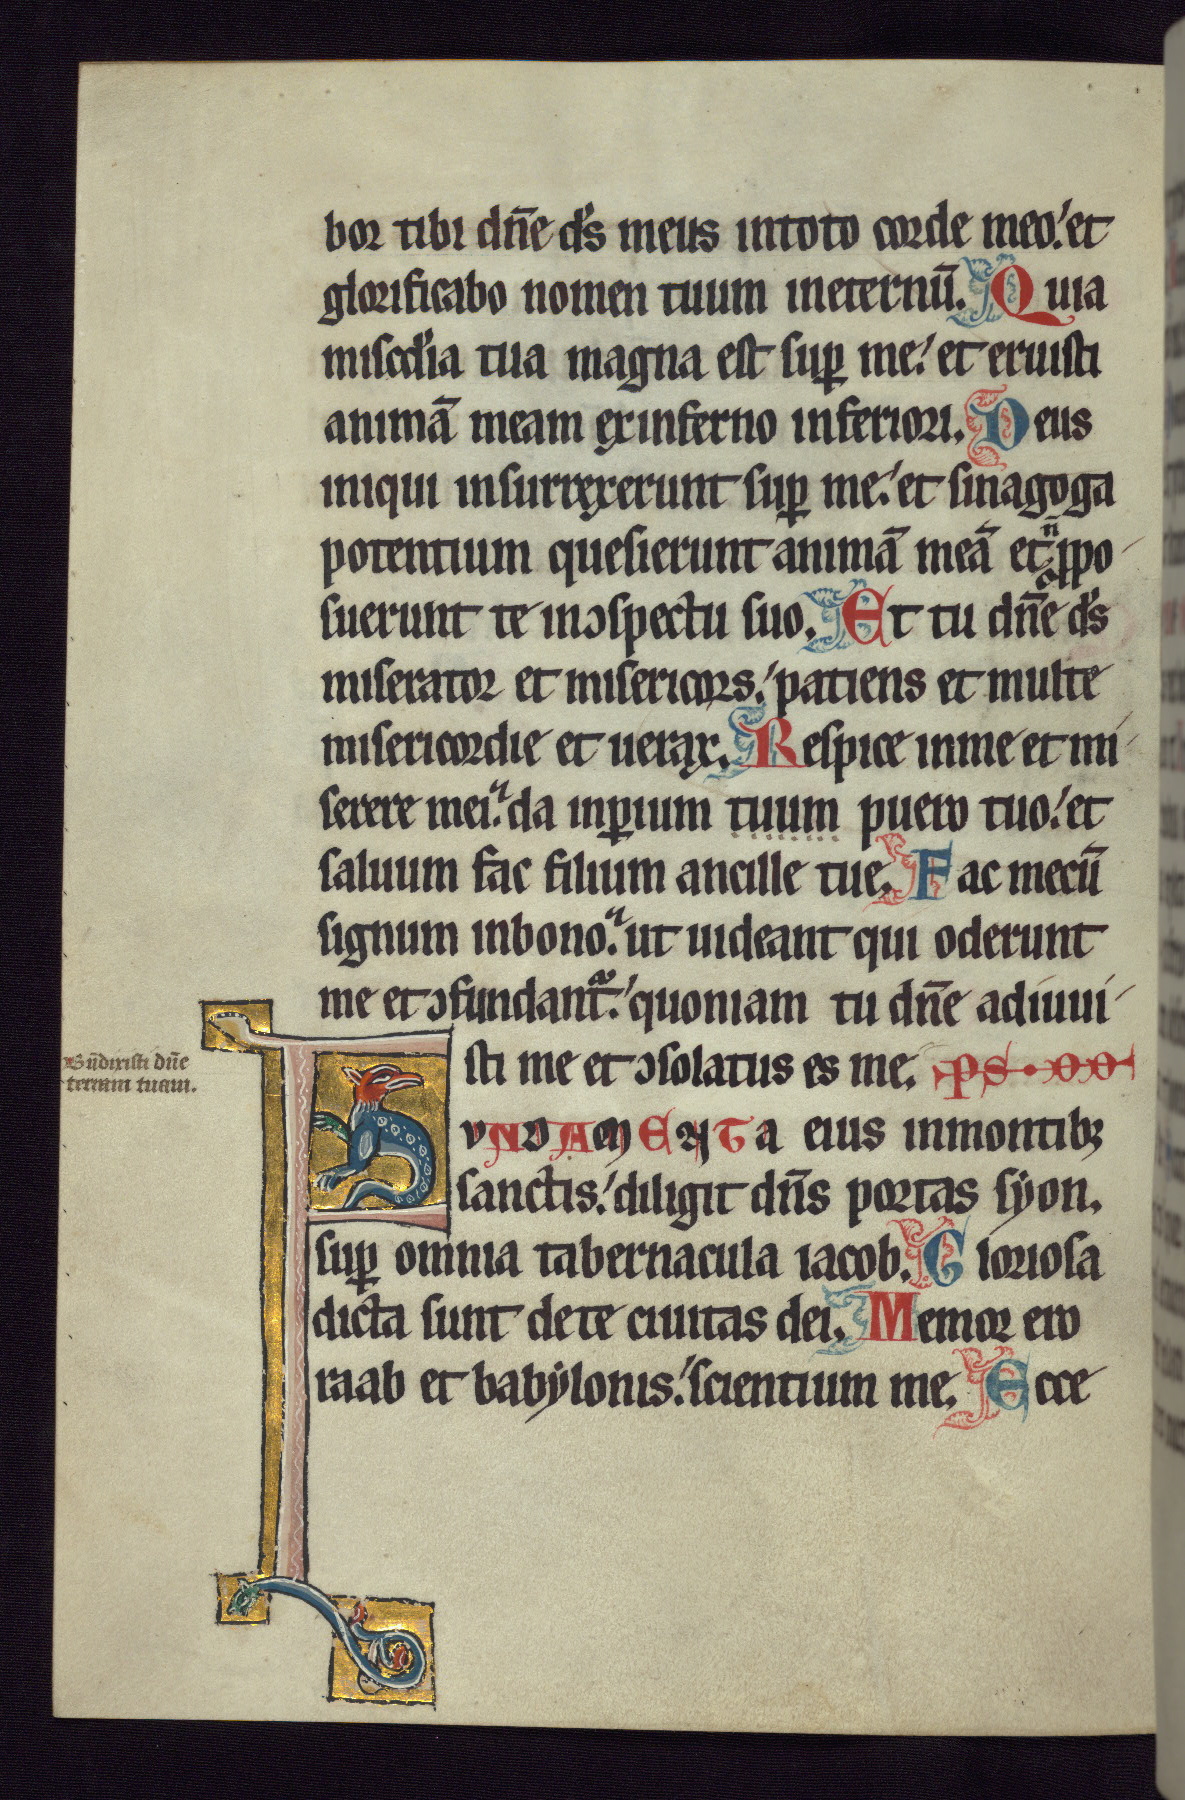 bor tibi dn̄e ds̄ meus intoto corde meo. et
glorificabo nomen tuum ineternū. Quia
misc̄dia tua magna est sup̱ me. et eruisti
animā meam exinferno inferiori. Deus
iniqui insurrexerunt sup̱ me. et sinagoga
potentium quesierunt animā meā et n̄ ꝓpo
suerunt te inↄspectu suo. Et tu dn̄e ds̄
miserator et misericors. patiens et multe
misericordie et uerax. Respice inme et mi
serere mei. da inp̱ium tuum puero tuo. et
saluum fac filium ancille tue. Fac mecū
signum inbono. ut uideant qui oderunt
me et ↄfundant᷑. quoniam tu dn̄e adiuui
Bn̄dixisti dn̄e
terram tuam.
sti me et ↄsolatus es me. PS.
FUNDAMENTA eius inmontibꝫ
sanctis. diligit dn̄s portas syon.
sup̱ omnia tabernacula iacob. Gloriosa
dicta sunt dete ciuitas dei. Memor ero
raab et babylonis. scientium me. Ecce